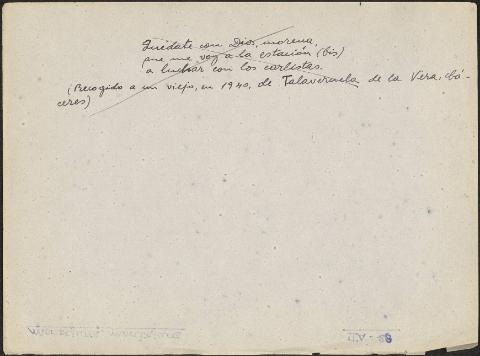 Quédate con Dios, morena,
que me voy a la estación (bis)
a luchar con los carlistas.
(Recogido a un viejo, en 1940, de Talaveruela de la Vera, Cá-
ceres)